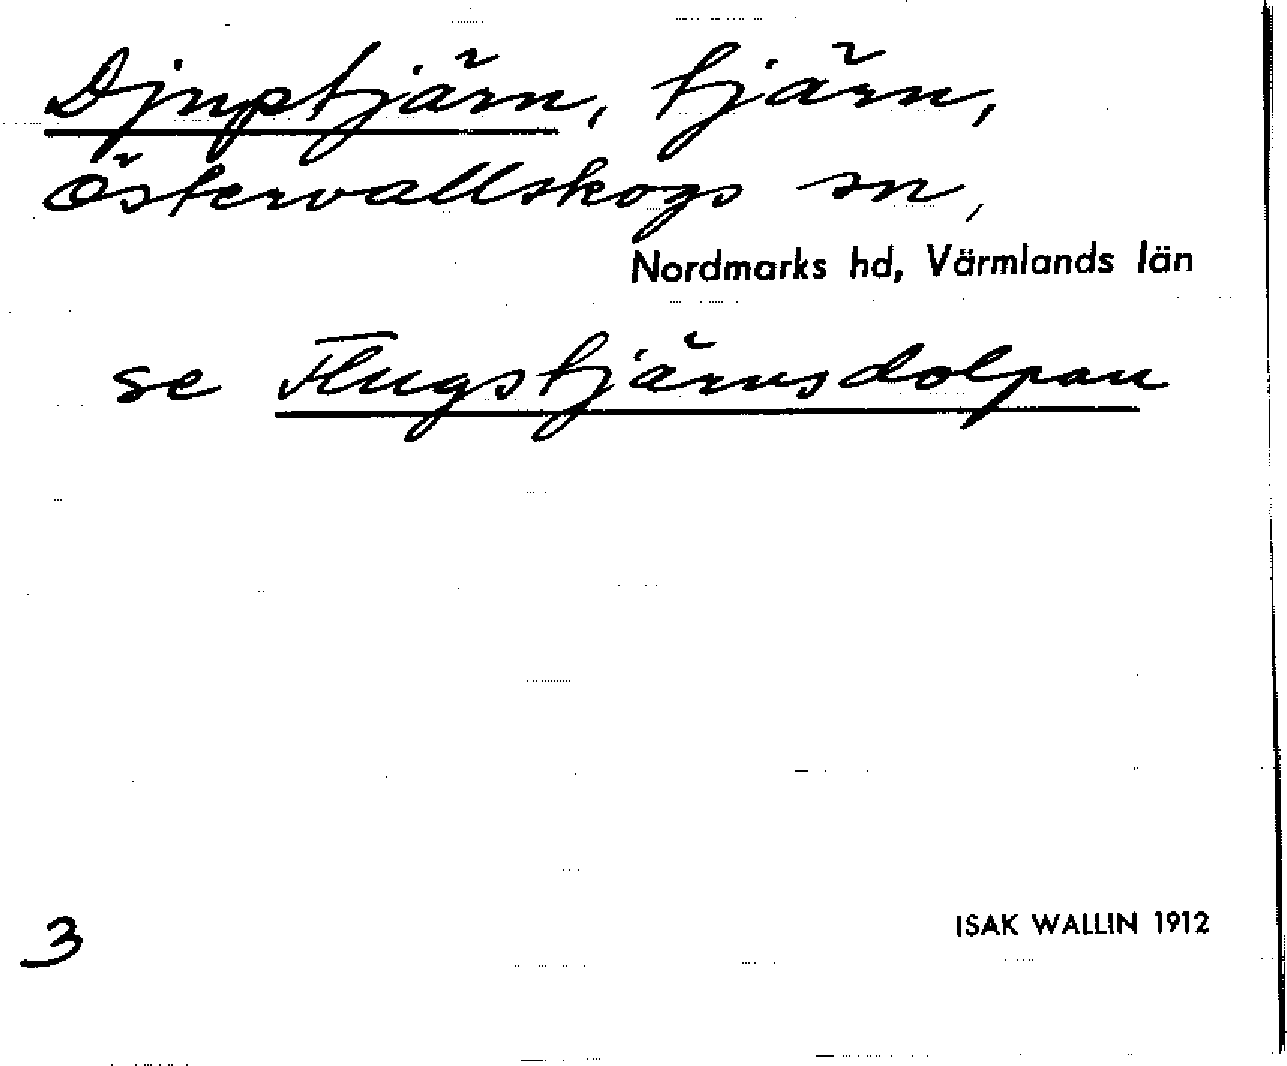 Djuptjärn, tjärn,
Östervallskogs sn,
Nordmarks hd, Värmlands län
se Flugstjärnsdolpan
3
ISAK WALLIN 1912